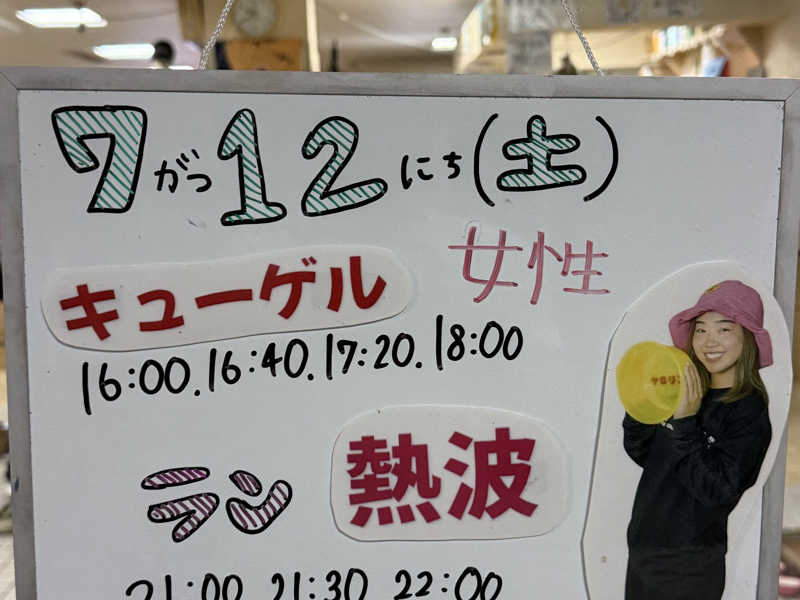 7がつ12にち(土)
女性
キューゲル
16:00.16:40.17:20.18:00
ケロリン
ラン 熱波
21:00 21:30 22:00